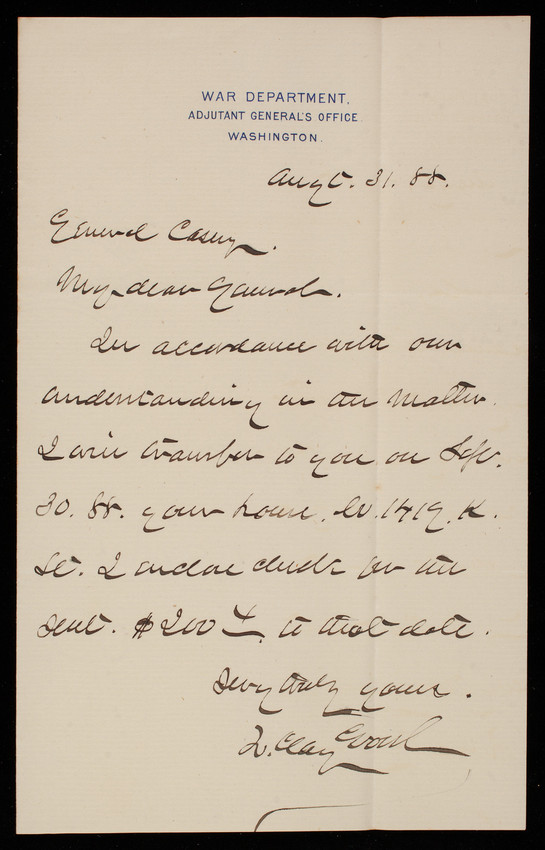 WAR DEPARTMENT,
ADJUTANT GENERAL'S OFFICE.
WASHINGTON.
Augt. 31. 88.
General Casey.
My dear General.
In accordance with our
understanding in the matter.
I will transfer to you on Sept.
30. 88. your house. No. 1419. K.
St. I enclose check for the
rent. $200 to that date.
Very truly yours.
H. Clay Wood